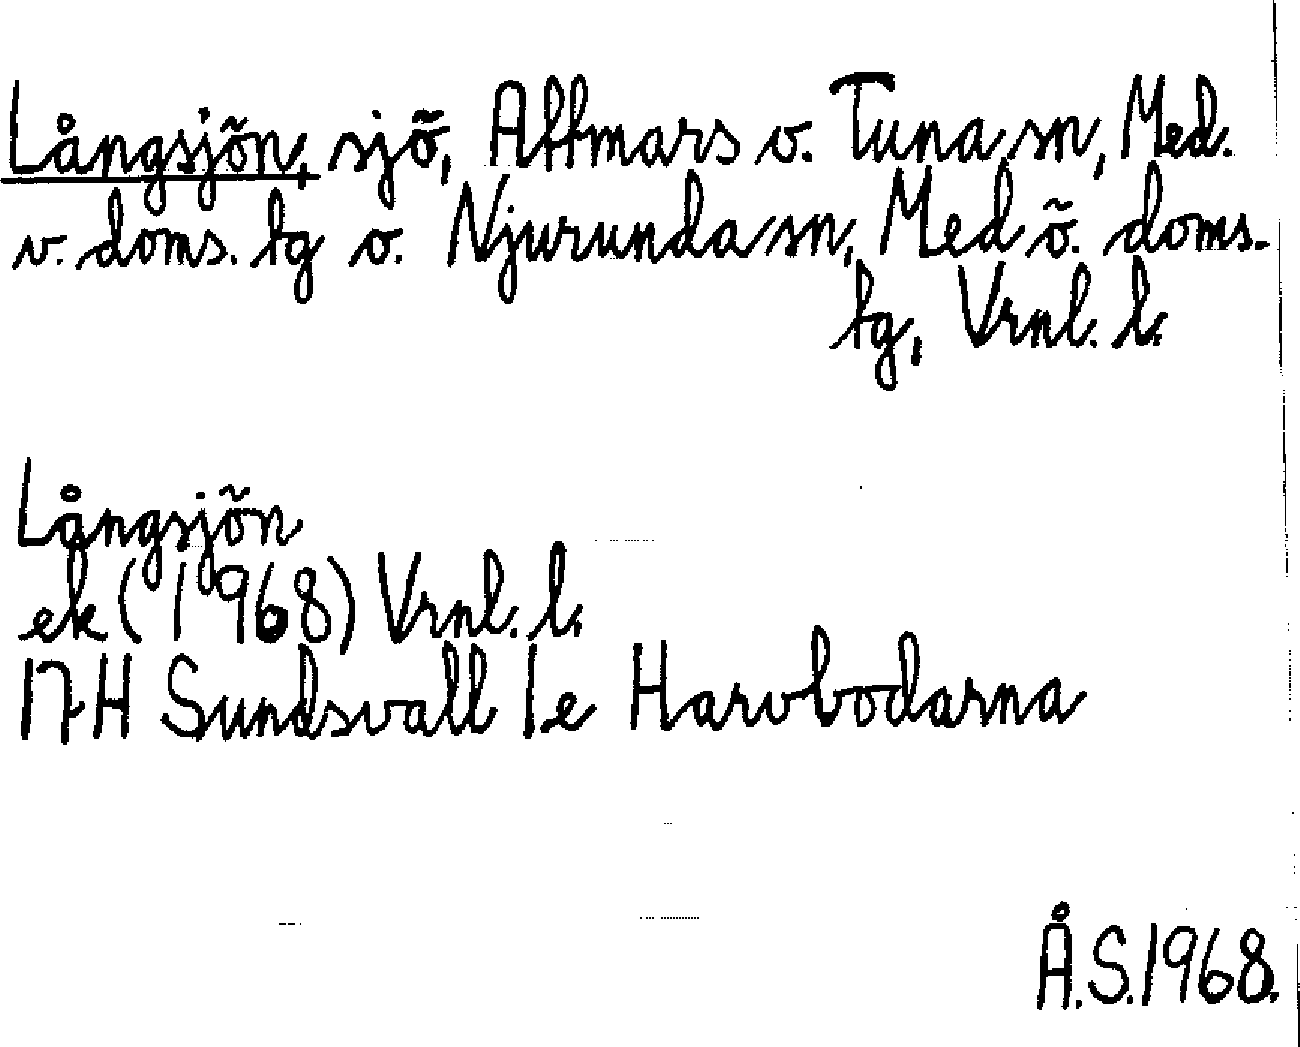 Långsjön, sjö, Attmars o. Tuna sn, Med.
v. doms. tg o. Njurunda sn, Med ö. doms.
tg, Vrnl. l.
Långsjön
ek (1968) Vrnl. l.
17H Sundsvall 1e Harvbodarna
Å.S.1968.